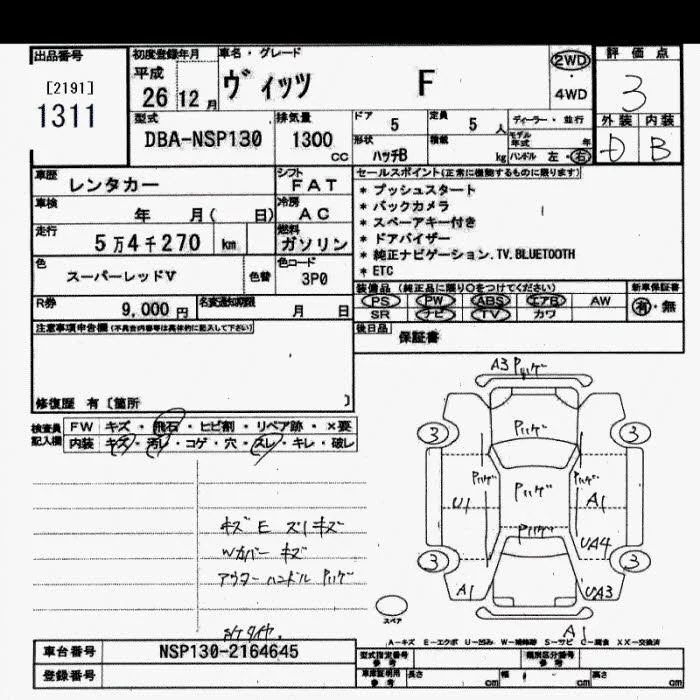 出品番号
[2191]
1311
初度登録年月
平成
26 12月
車名・グレード
ヴィッツ F
2WD
・
4WD
評価点
3
外装 内装
D B
型式
DBA-NSP130
排気量
1300
cc
ドア 5
定員 5 人
ディーラー・並行
形状
ハッチB
積載
kg
モデル年式 年
ハンドル 左・右
車歴
レンタカー
シフト
FAT
車検
年 月( 日)
冷房
AC
走行
5万4千270 km
燃料
ガソリン
色
スーパーレッドV
色替
色コード
3P0
R券
9,000 円
名変通知期限
月 日
セールスポイント(正常に機能するものに限ります)
* プッシュスタート
* バックカメラ
* スペアキー付き
* ドアバイザー
* 純正ナビゲーション.TV.BLUETOOTH
* ETC
装備品 (純正品に限り○をつけてください)
新車保証書
PS PW ABS エアB AW
有・無
SR ナビ TV カワ
後日品
保証書
注意事項申告欄(不具合内容等は具体的に記入して下さい)
修復歴 有〔箇所 〕
検査員記入欄
FW キズ・飛石・ヒビ割・リペア跡・×要
内装 キズ・汚レ・コゲ・穴・スレ・キレ・破レ
キズE スリキズ
Wカバー キズ
アウターハンドル
A3
3
3
U1
A1
UA4
3
3
A1
UA3
スペア
A1
A-キズ E-エクボ U-凹み W-補修跡 S-サビ C-腐食 XX-交換済
車台番号
NSP130-2164645
登録番号
型式指定番号
参考
類別区分番号
参考
車庫証明用
参考
長さ cm
幅 cm
高さ cm